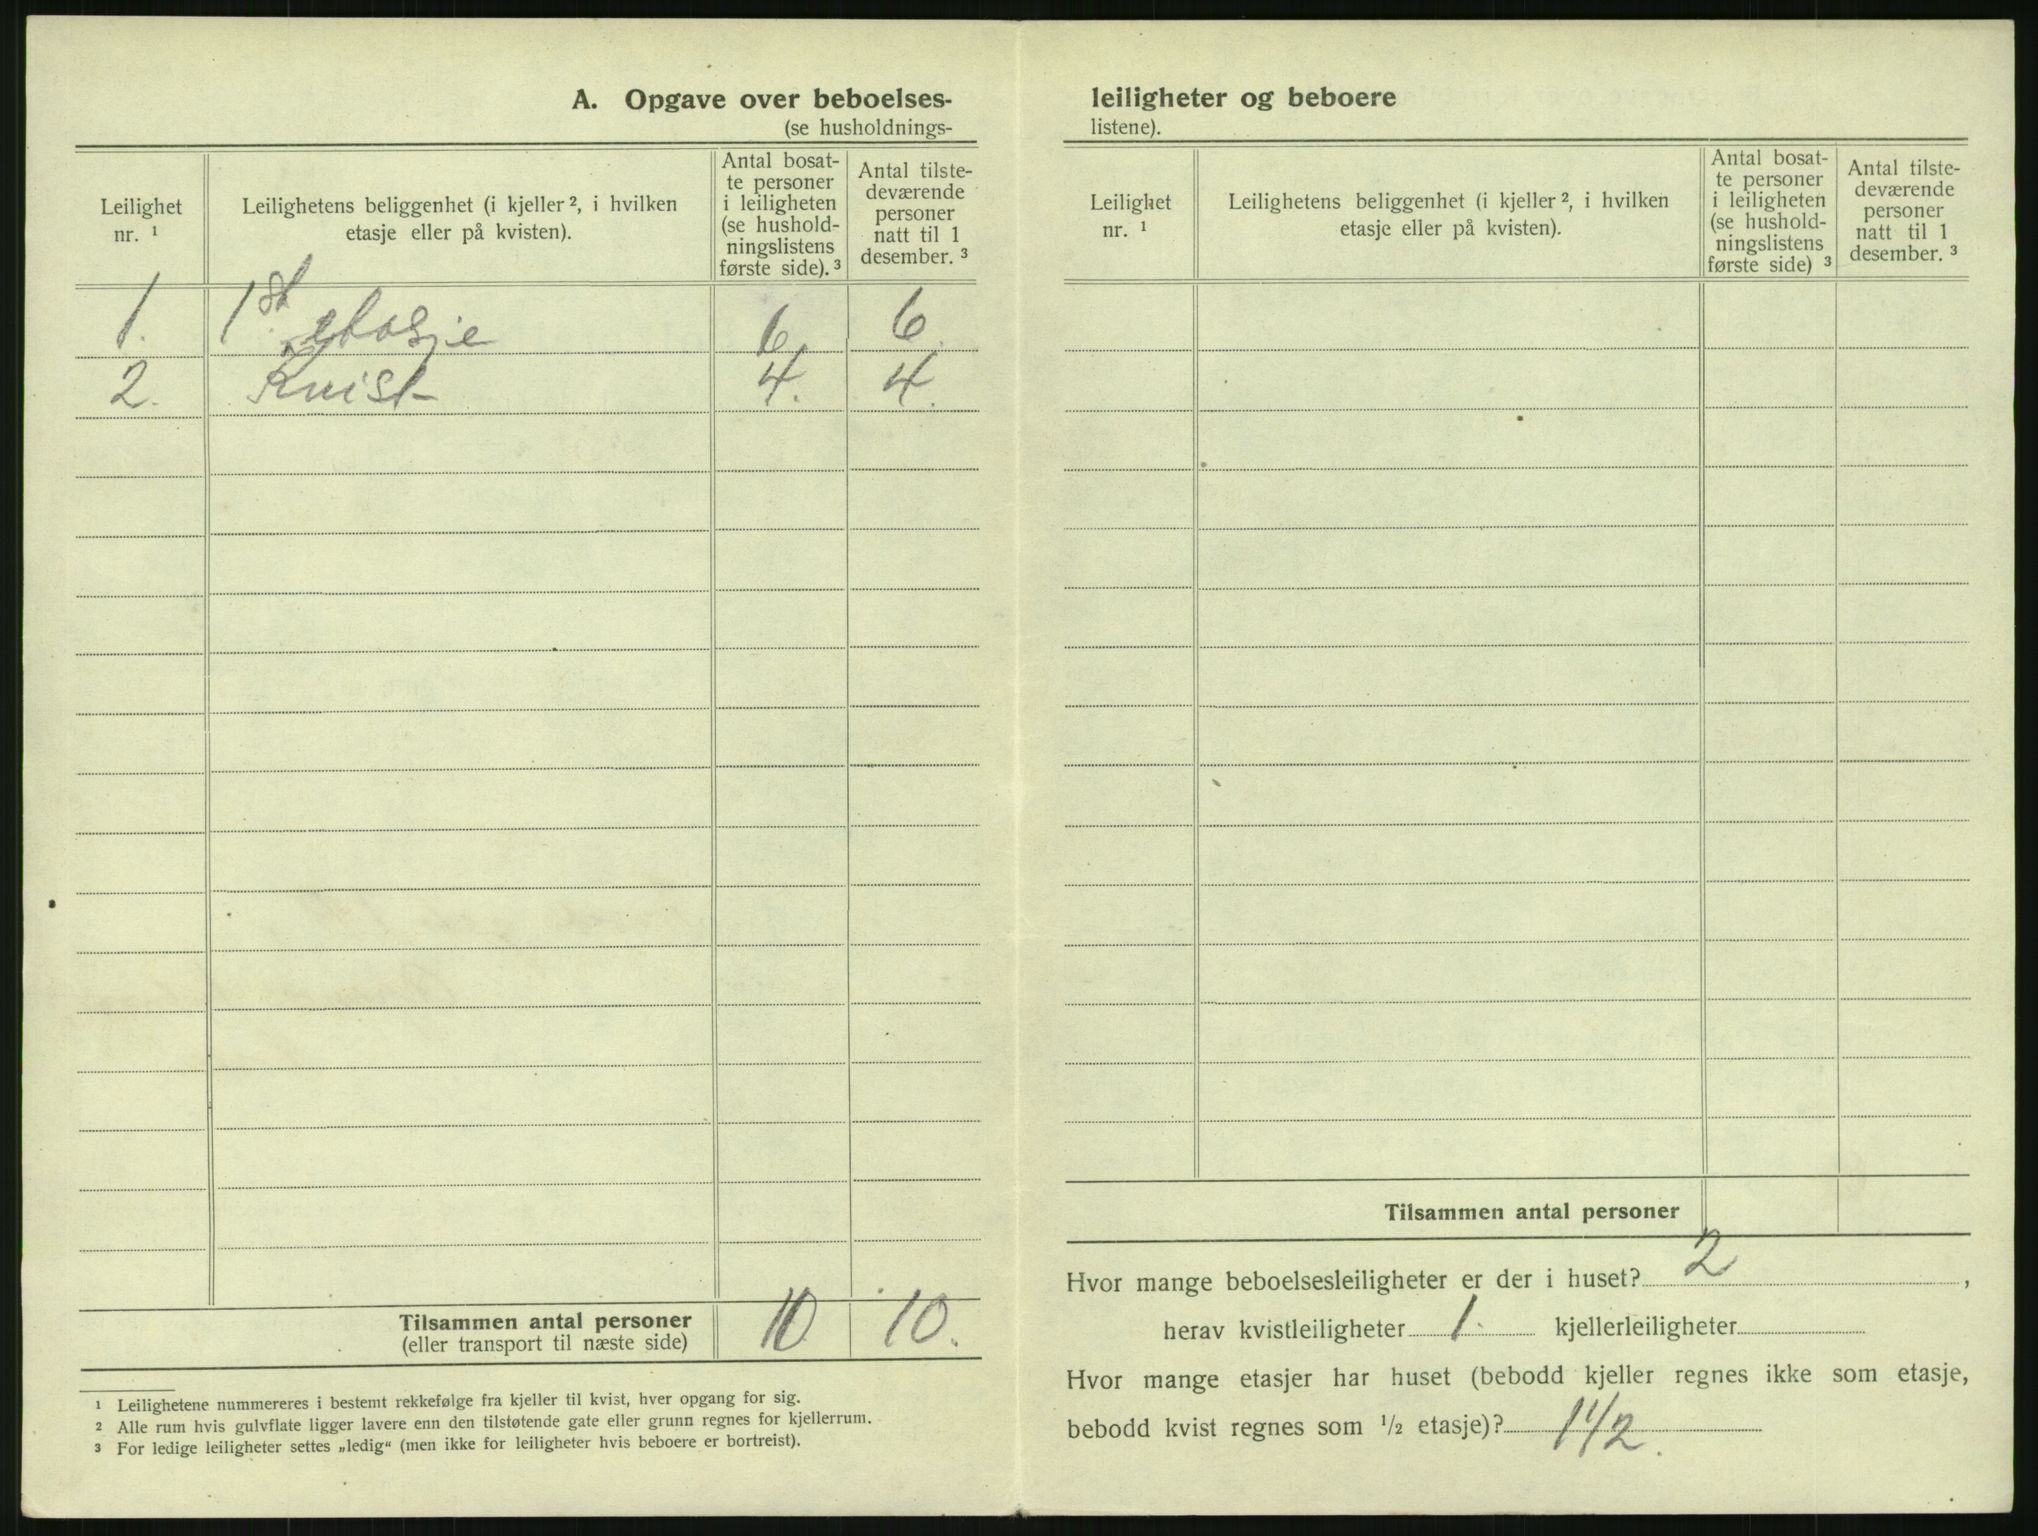 A. Opgave over beboelses-
(se husholdnings-
Leilighet
nr. ¹
Leilighetens beliggenhet (i kjeller ², i hvilken
etasje eller på kvisten).
Antal bosat-
te personer
i leiligheten
(se hushold-
ningslistens
første side). ³
Antal tilste-
deværende
personer
natt til 1
desember. ³
1. 1st etasje 6 6.
2. Kvist 4. 4.
Tilsammen antal personer
(eller transport til næste side)
10 10.
¹ Leilighetene nummereres i bestemt rekkefølge fra kjeller til kvist, hver opgang for sig.
² Alle rum hvis gulvflate ligger lavere enn den tilstøtende gate eller grunn regnes for kjellerrum.
³ For ledige leiligheter settes „ledig“ (men ikke for leiligheter hvis beboere er bortreist).
leiligheter og beboere
listene).
Leilighet
nr. ¹
Leilighetens beliggenhet (i kjeller ², i hvilken
etasje eller på kvisten).
Antal bosat-
te personer
i leiligheten
(se hushold-
ningslistens
første side) ³
Antal tilste-
deværende
personer
natt til 1
desember. ³
Tilsammen antal personer
Hvor mange beboelsesleiligheter er der i huset? 2,
herav kvistleiligheter 1. kjellerleiligheter
Hvor mange etasjer har huset (bebodd kjeller regnes ikke som etasje,
bebodd kvist regnes som ½ etasje)? 1 1/2.